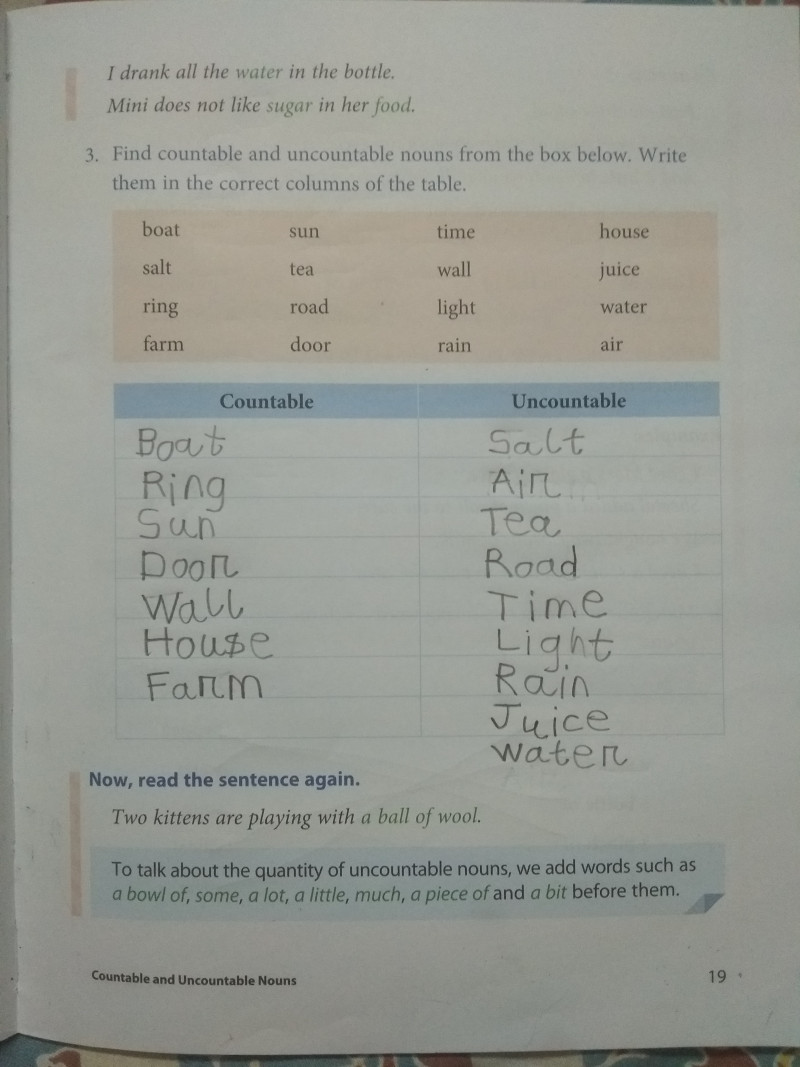 I drank all the water in the bottle.
Mini does not like sugar in her food.
3. Find countable and uncountable nouns from the box below. Write
them in the correct columns of the table.
boat sun time house
salt tea wall juice
ring road light water
farm door rain air
Countable Uncountable
Boat Salt
Ring Air
Sun Tea
Door Road
Wall Time
House Light
Farm Rain
Juice
Water
Now, read the sentence again.
Two kittens are playing with a ball of wool.
To talk about the quantity of uncountable nouns, we add words such as
a bowl of, some, a lot, a little, much, a piece of and a bit before them.
Countable and Uncountable Nouns 19